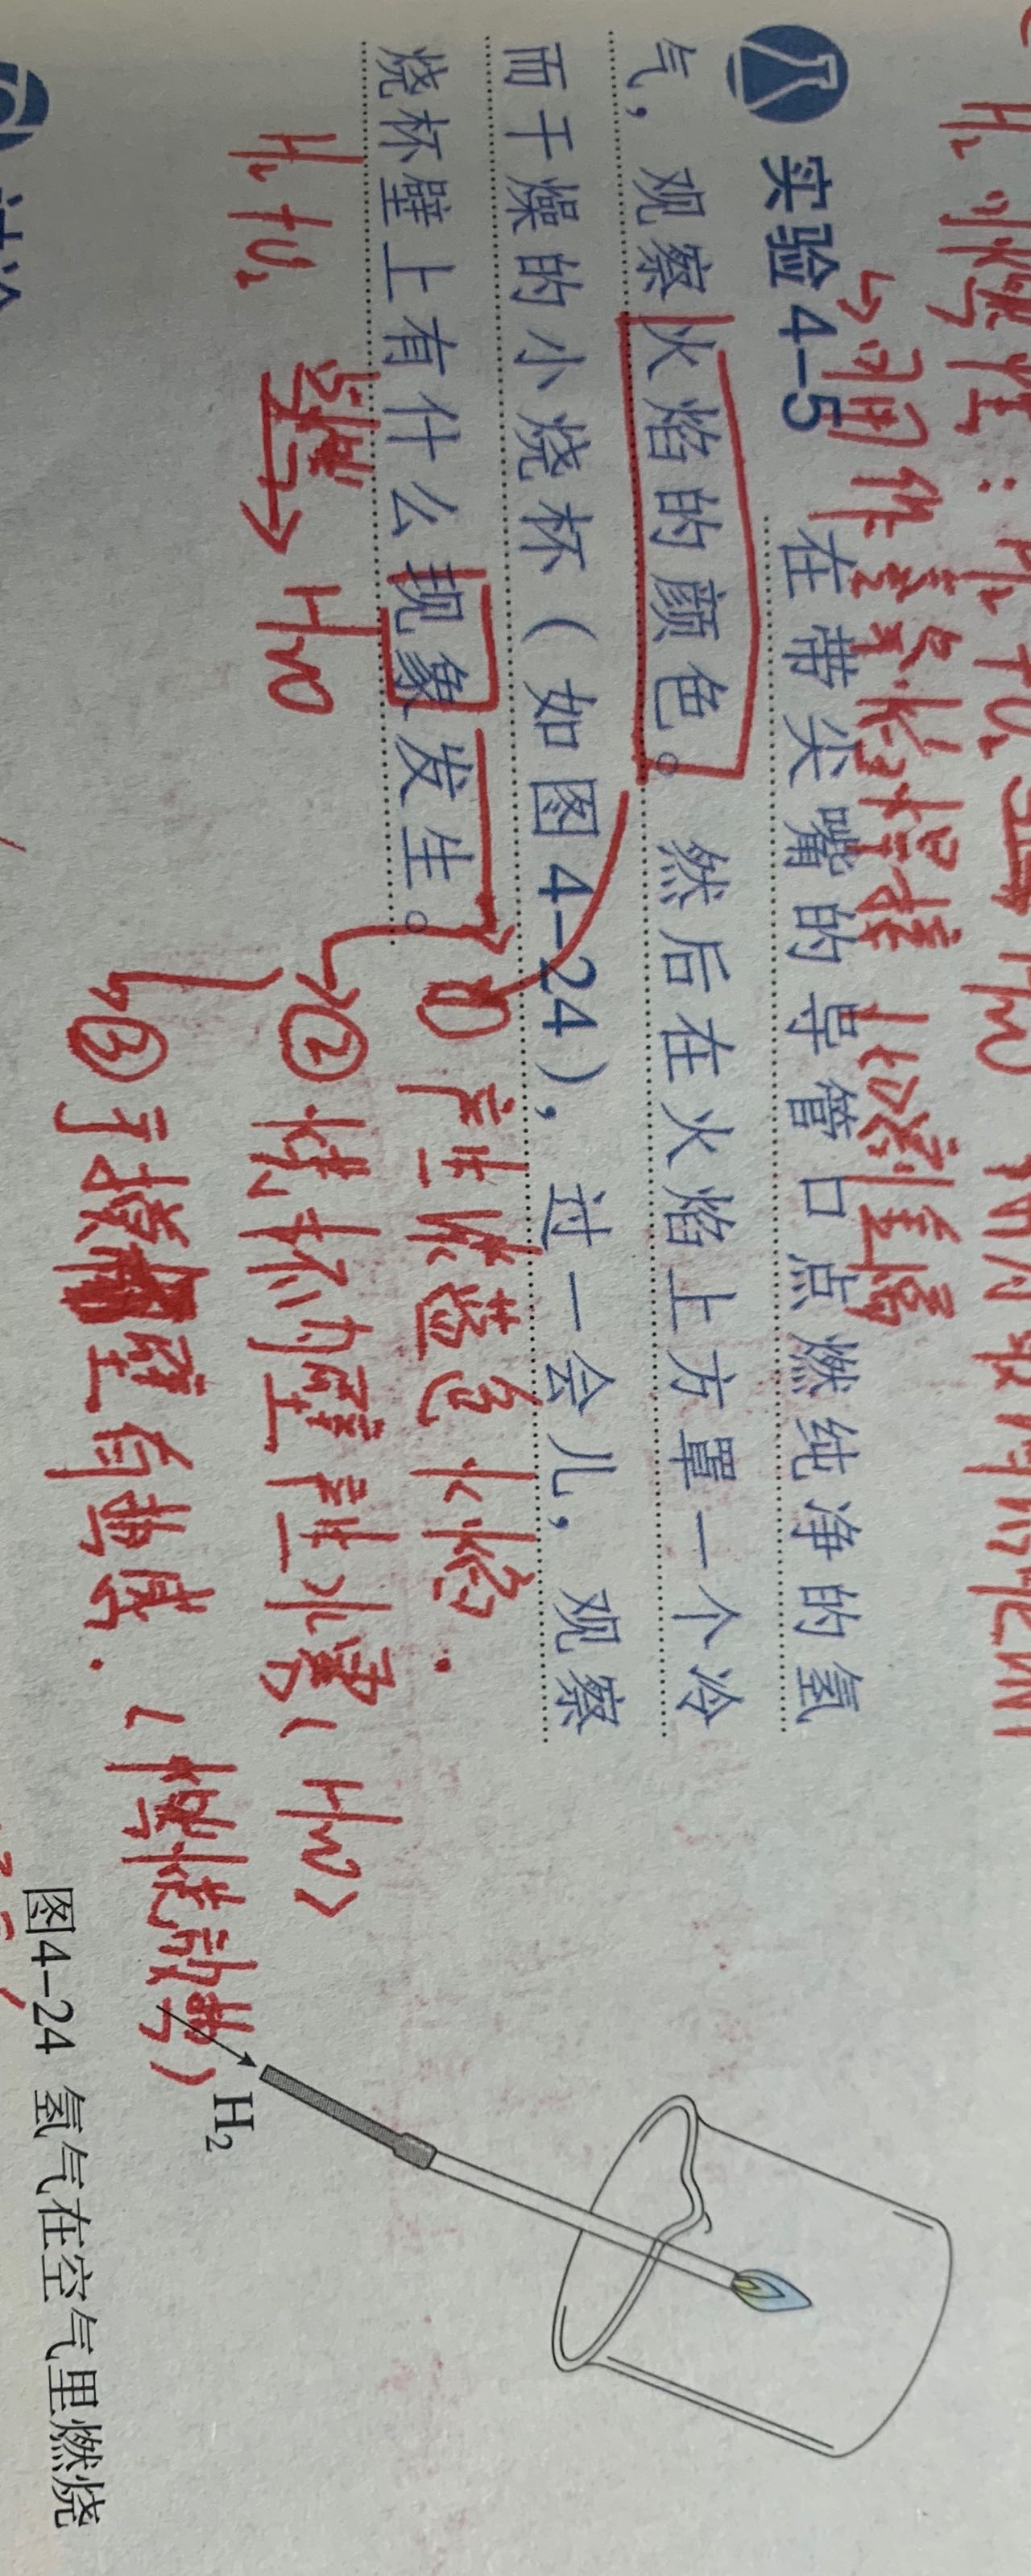 H₂ 可燃性：H₂+O₂ 点燃 H₂O
↳可用作高
实验 4-5 在带尖嘴的导管口点燃纯净的氢
气，观察火焰的颜色。然后在火焰上方罩一个冷
而干燥的小烧杯（如图 4-24），过一会儿，观察
烧杯壁上有什么现象发生。
① 产生淡蓝色火焰.
H₂+O₂ 点燃→ H₂O
② 烧杯内壁产生水雾（H₂O）
③ 手摸 壁有热感.（燃烧放热）
H₂
图4-24 氢气在空气里燃烧
讨论